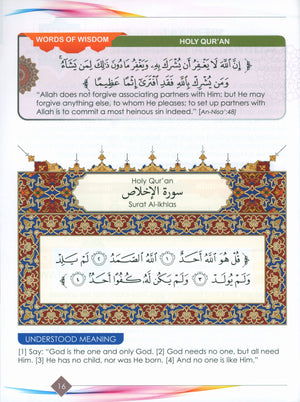 WORDS OF WISDOM
HOLY QUR'AN
﴿ إِنَّ اللَّهَ لَا يَغْفِرُ أَن يُشْرَكَ بِهِ، وَيَغْفِرُ مَا دُونَ ذَلِكَ لِمَن يَشَاءُ
وَمَن يُشْرِكْ بِاللَّهِ فَقَدِ افْتَرَى إِثْمًا عَظِيمًا ﴾
"Allah does not forgive associating partners with Him; but He may
forgive anything else, to whom He pleases; to set up partners with
Allah is to commit a most heinous sin indeed." [An-Nisa':48]
Holy Qur'an
سورة الإخلاص
Surat Al-Ikhlas
﴿ قُلْ هُوَ اللَّهُ أَحَدٌ ١ اللَّهُ الصَّمَدُ ٢ لَمْ يَلِدْ
وَلَمْ يُولَدْ ٣ وَلَمْ يَكُن لَّهُ كُفُوًا أَحَدٌ ٤ ﴾
UNDERSTOOD MEANING
[1] Say: "God is the one and only God. [2] God needs no one, but all need
Him. [3] He has no child, nor was He born. [4] And no one is like Him."
16